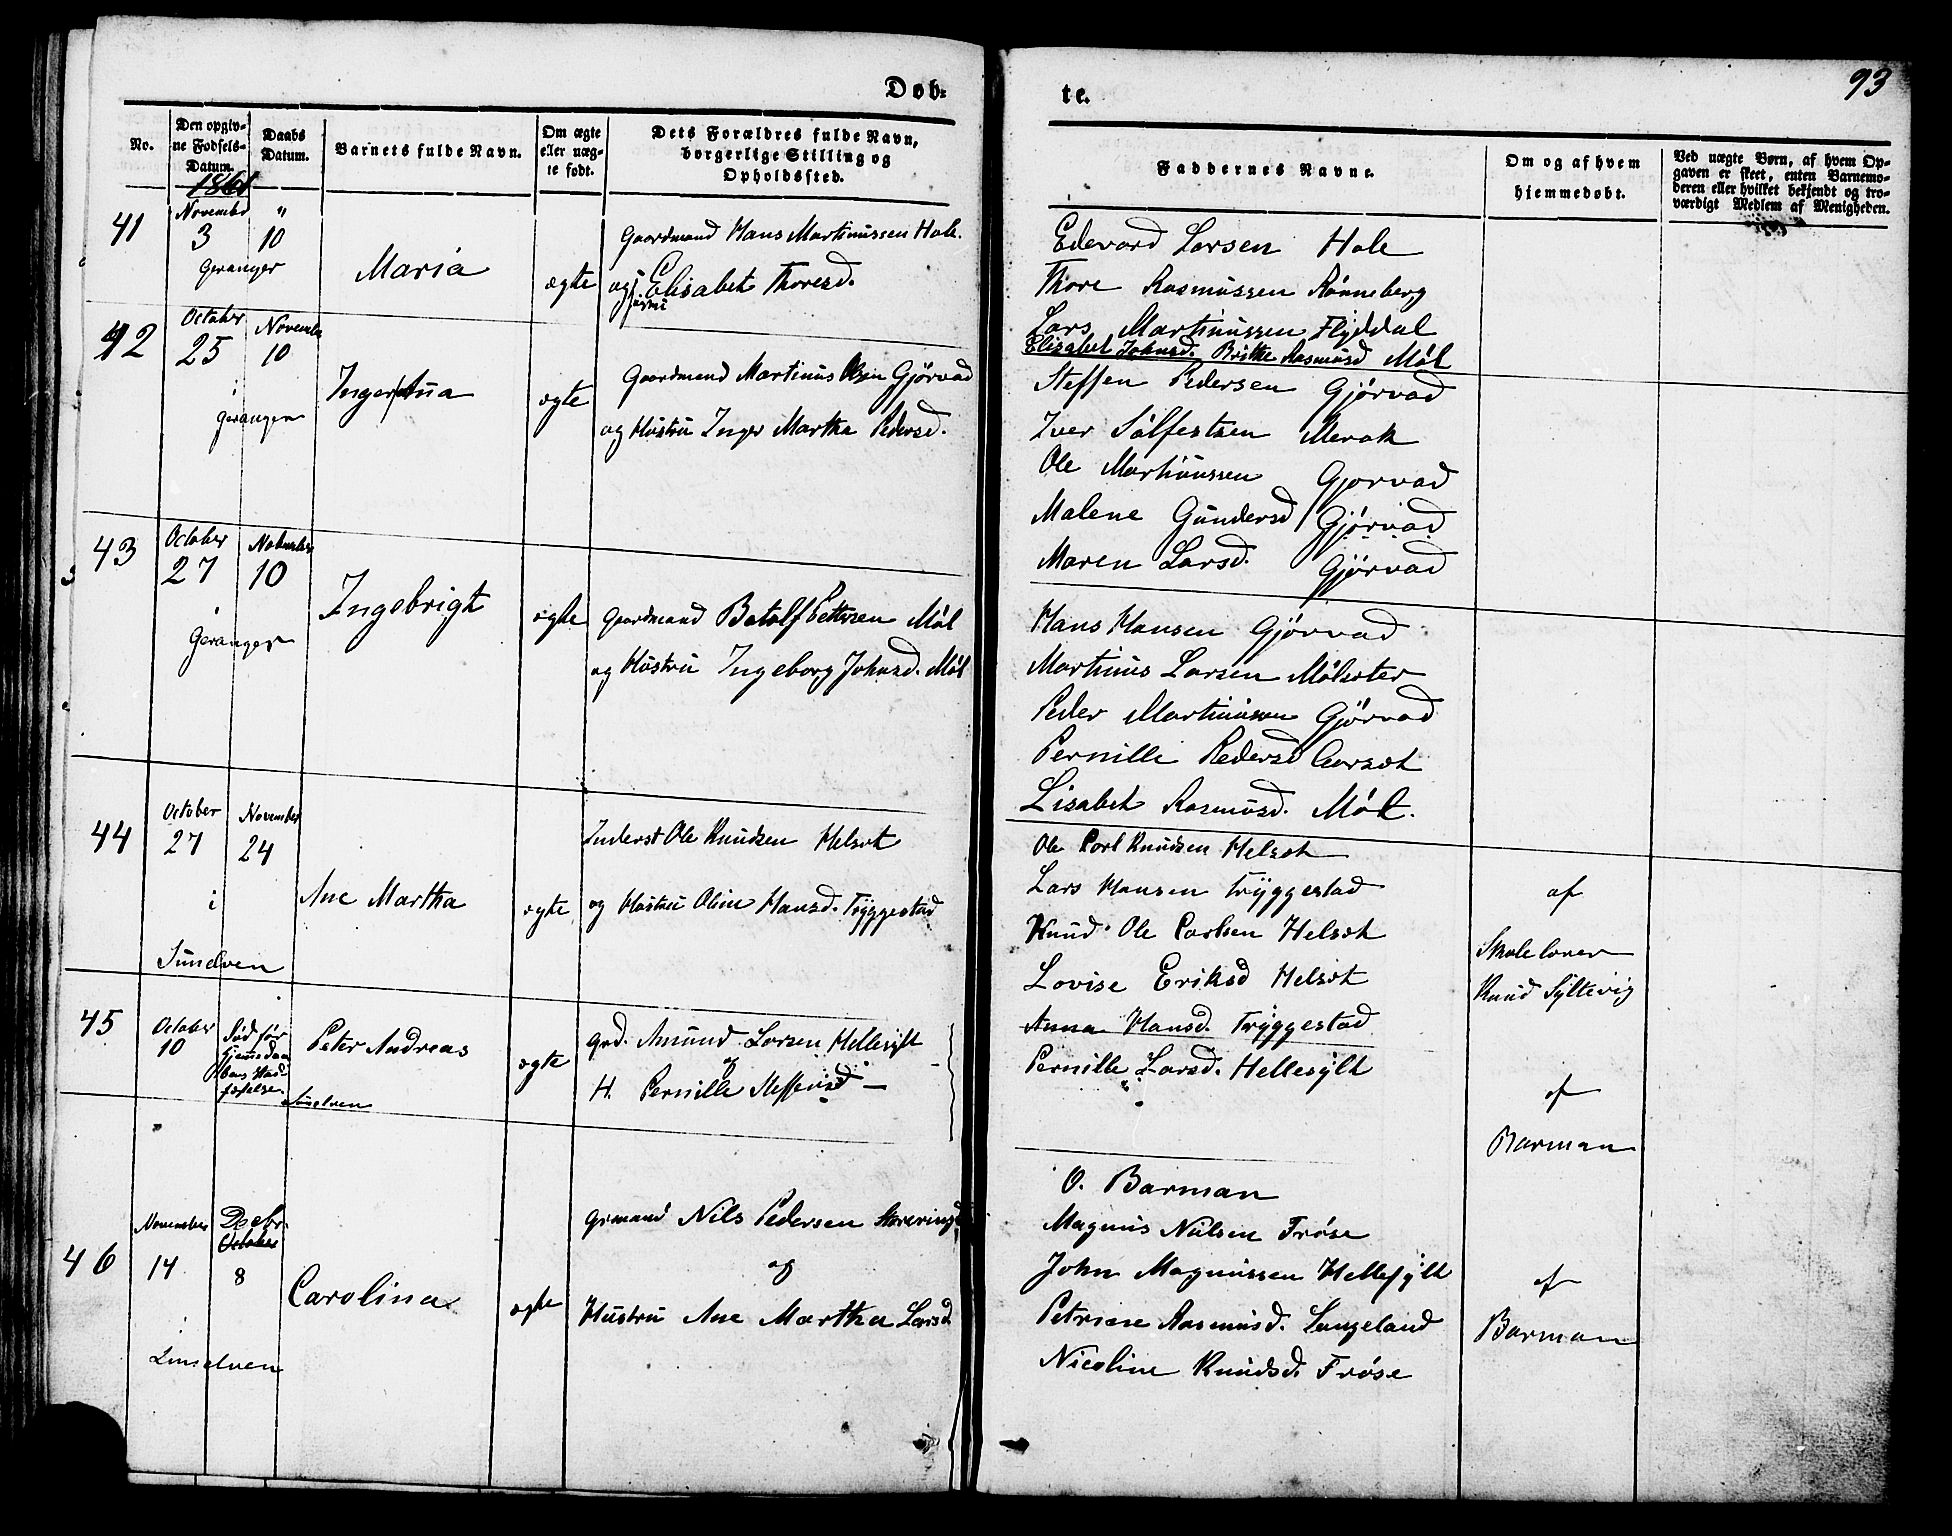 Døb-
te.
93
No.
Den opgiv-
ne Fødsels-
Datum.
Daabs
Datum.
Barnets fulde Navn.
Om ægte
eller uæg-
te født.
Dets Forældres fulde Navn,
borgerlige Stilling og
Opholdssted.
Faddernes Navne.
Om og af hvem
hjemmedøbt.
Ved uægte Børn, af hvem Op-
gaven er skeet, enten Barnemo-
deren eller hvilket bekjendt og tro-
værdigt Medlem af Menigheden.
1861
41
Novembr
3
Geranger
"
10
Maria
ægte
Gaardmand Hans Martinussen Hole.
og Elisabet Thoresd.
Edevard Larsen Hole
Thore Rasmussen Rønneberg
Lars Martinussen Flyddal
Elisabet Johnsd. Britte Rasmusd Møl
42
October
25
i
Geranger
November
10
Inger Ana
ægte
Gaardmand Martinus Olsen Gjørvad
og Hustru Inger Martha Pedersd.
Steffen Pedersen Gjørvad
Iver Sølfestsen Merok
Ole Martinussen Gjørvad
Malene Gundersd Gjørvad
Maren Larsd. Gjørvad
43
October
27
i
Geranger
November
10
Ingebrigt
ægte
Gaardmand Botolf Pettersen Møl
og Hustru Ingeborg Johnsd. Møl
Hans Hansen Gjørvad
Martinus Larsen Mølsæter
Peder Martinussen Gjørvad
Pernille Pedersd Korsæt
Lisabet Rasmusd. Møl.
44
October
27
i
Sunelven
November
24
Ane Martha
ægte
Inderst Ole Knudsen Helsæt
og Hustru Oline Hansd. Tryggestad
Ole Carl Knudsen Helsæt
Lars Hansen Tryggestad
Knud Ole Carlsen Helsæt
Lovise Eriksd Helsæt
Anna Hansd. Tryggestad
af
Skolelærer
Knud Syltevig
45
October
10
Død før
Hjemmedaa
bens Stad-
fæstelse
Sunelven
Peter Andreas
ægte
Grd. Amund Larsen Hellesylt
og
H. Pernille Steffensd —
Pernille Larsd. Hellesylt
af
Barman
46
November
14
i
Sunelven
Decbr.
October
8
Carolina
ægte
Grmand Nils Pedersen
og
Hustru Ane Martha Larsd
O. Barman
Magnus Nielsen Frøse
John Magnussen Hellesylt
Petrine Rasmusd. Langeland
Nicoline Knudsd. Frøse
af
Barman